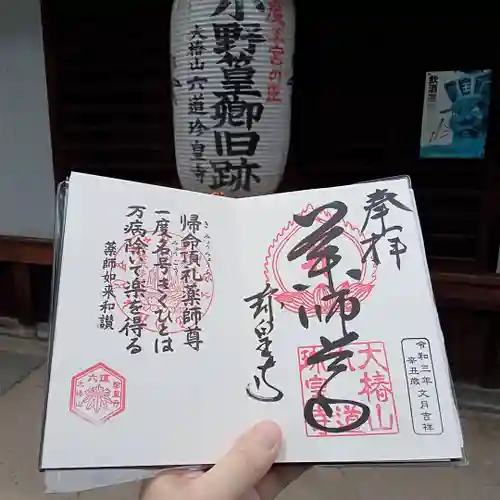 小野篁卿旧跡
大椿山 六道珍皇寺
奉拝
薬師尊
珍皇寺
大椿山
六道
珍皇寺
令和三年文月吉祥
辛丑歳
帰命頂礼薬師尊
一度名号きくひとは
万病除いて楽を得る
薬師如来和讃
六道
大椿山
珍皇寺
飲酒